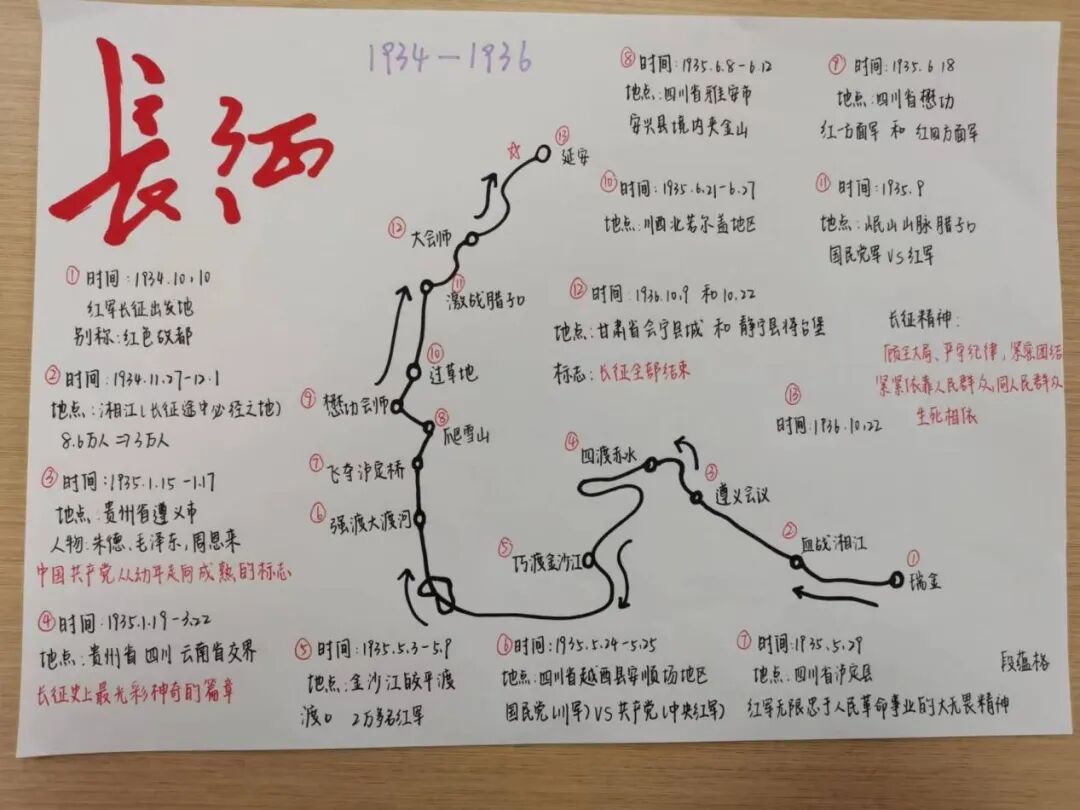 長征
1934—1936
①时间:1934.10.10
红军长征出发地
别称:红色故都
②时间:1934.11.27-12.1
地点:湘江(长征途中必经之地)
8.6万人⇒3万人
③时间:1935.1.15-1.17
地点:贵州省遵义市
人物:朱德、毛泽东,周恩来
中国共产党从幼年走向成熟的标志
④时间:1935.1.19-3.22
地点:贵州省 四川 云南省交界
长征史上最光彩神奇的篇章
⑤时间:1935.5.3-5.9
地点:金沙江皎平渡
渡口 2万多名红军
⑥时间:1935.5.24-5.25
地点:四川省越西县安顺场地区
国民党(川军)VS共产党(中央红军)
⑦时间:1935.5.29
地点:四川省泸定县
红军无限忠于人民革命事业的大无畏精神
⑧时间:1935.6.8-6.12
地点:四川省雅安市
安兴县境内夹金山
⑨时间:1935.6.18
地点:四川省懋功
红一方面军 和 红四方面军
⑩时间:1935.6.21-6.27
地点:川西北若尔盖地区
⑪时间:1935.9
地点:岷山山脉腊子口
国民党军VS红军
⑫时间:1936.10.9 和10.22
地点:甘肃省会宁县城 和 静宁县将台堡
标志:长征全部结束
⑬
时间:1936.10.22
长征精神:
顾全大局、严守纪律,紧密团结
紧紧依靠人民群众,同人民群众
生死相依
⑬延安
⑫大会师
⑪激战腊子口
⑩过草地
⑨懋功会师
⑧爬雪山
⑦飞夺泸定桥
⑥强渡大渡河
⑤巧渡金沙江
④四渡赤水
③遵义会议
②血战湘江
①瑞金